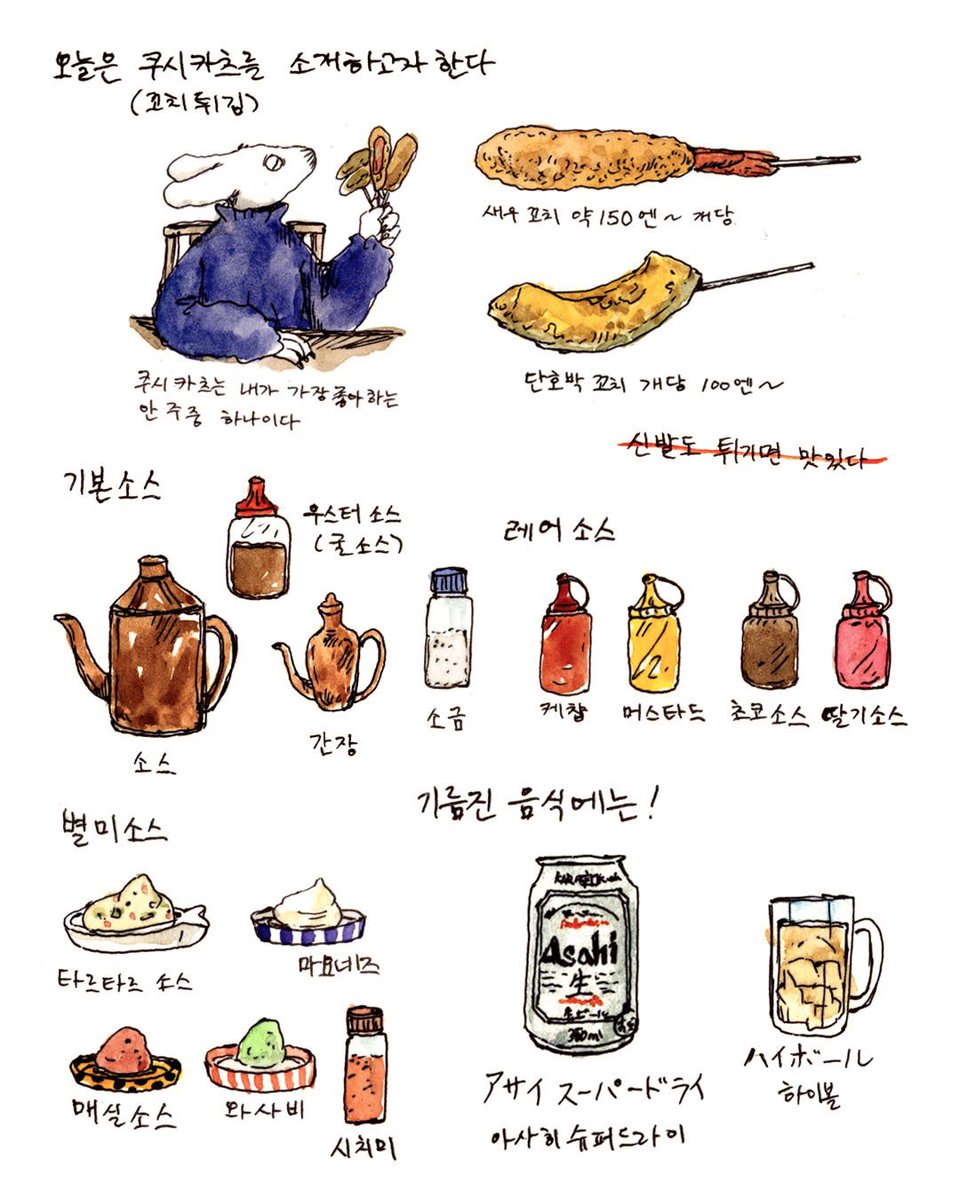 오늘은 쿠시카츠를 소개하고자 한다
(꼬치튀김)
새우 꼬치 약 150엔~ 개당
쿠시카츠는 내가 가장 좋아하는
안주 중 하나이다
단호박 꼬치 개당 100엔~
신발도 튀기면 맛있다
기본소스
우스터 소스
(굴소스)
레어 소스
소스
간장
소금
케찹
머스타드
초코소스
딸기소스
별미소스
기름진 음식에는!
타르타르 소스
마요네즈
매실소스
와사비
시치미
Asahi
生
生ビール
350ml
アサイ スーパードライ
아사히 슈퍼드라이
ハイボール
하이볼